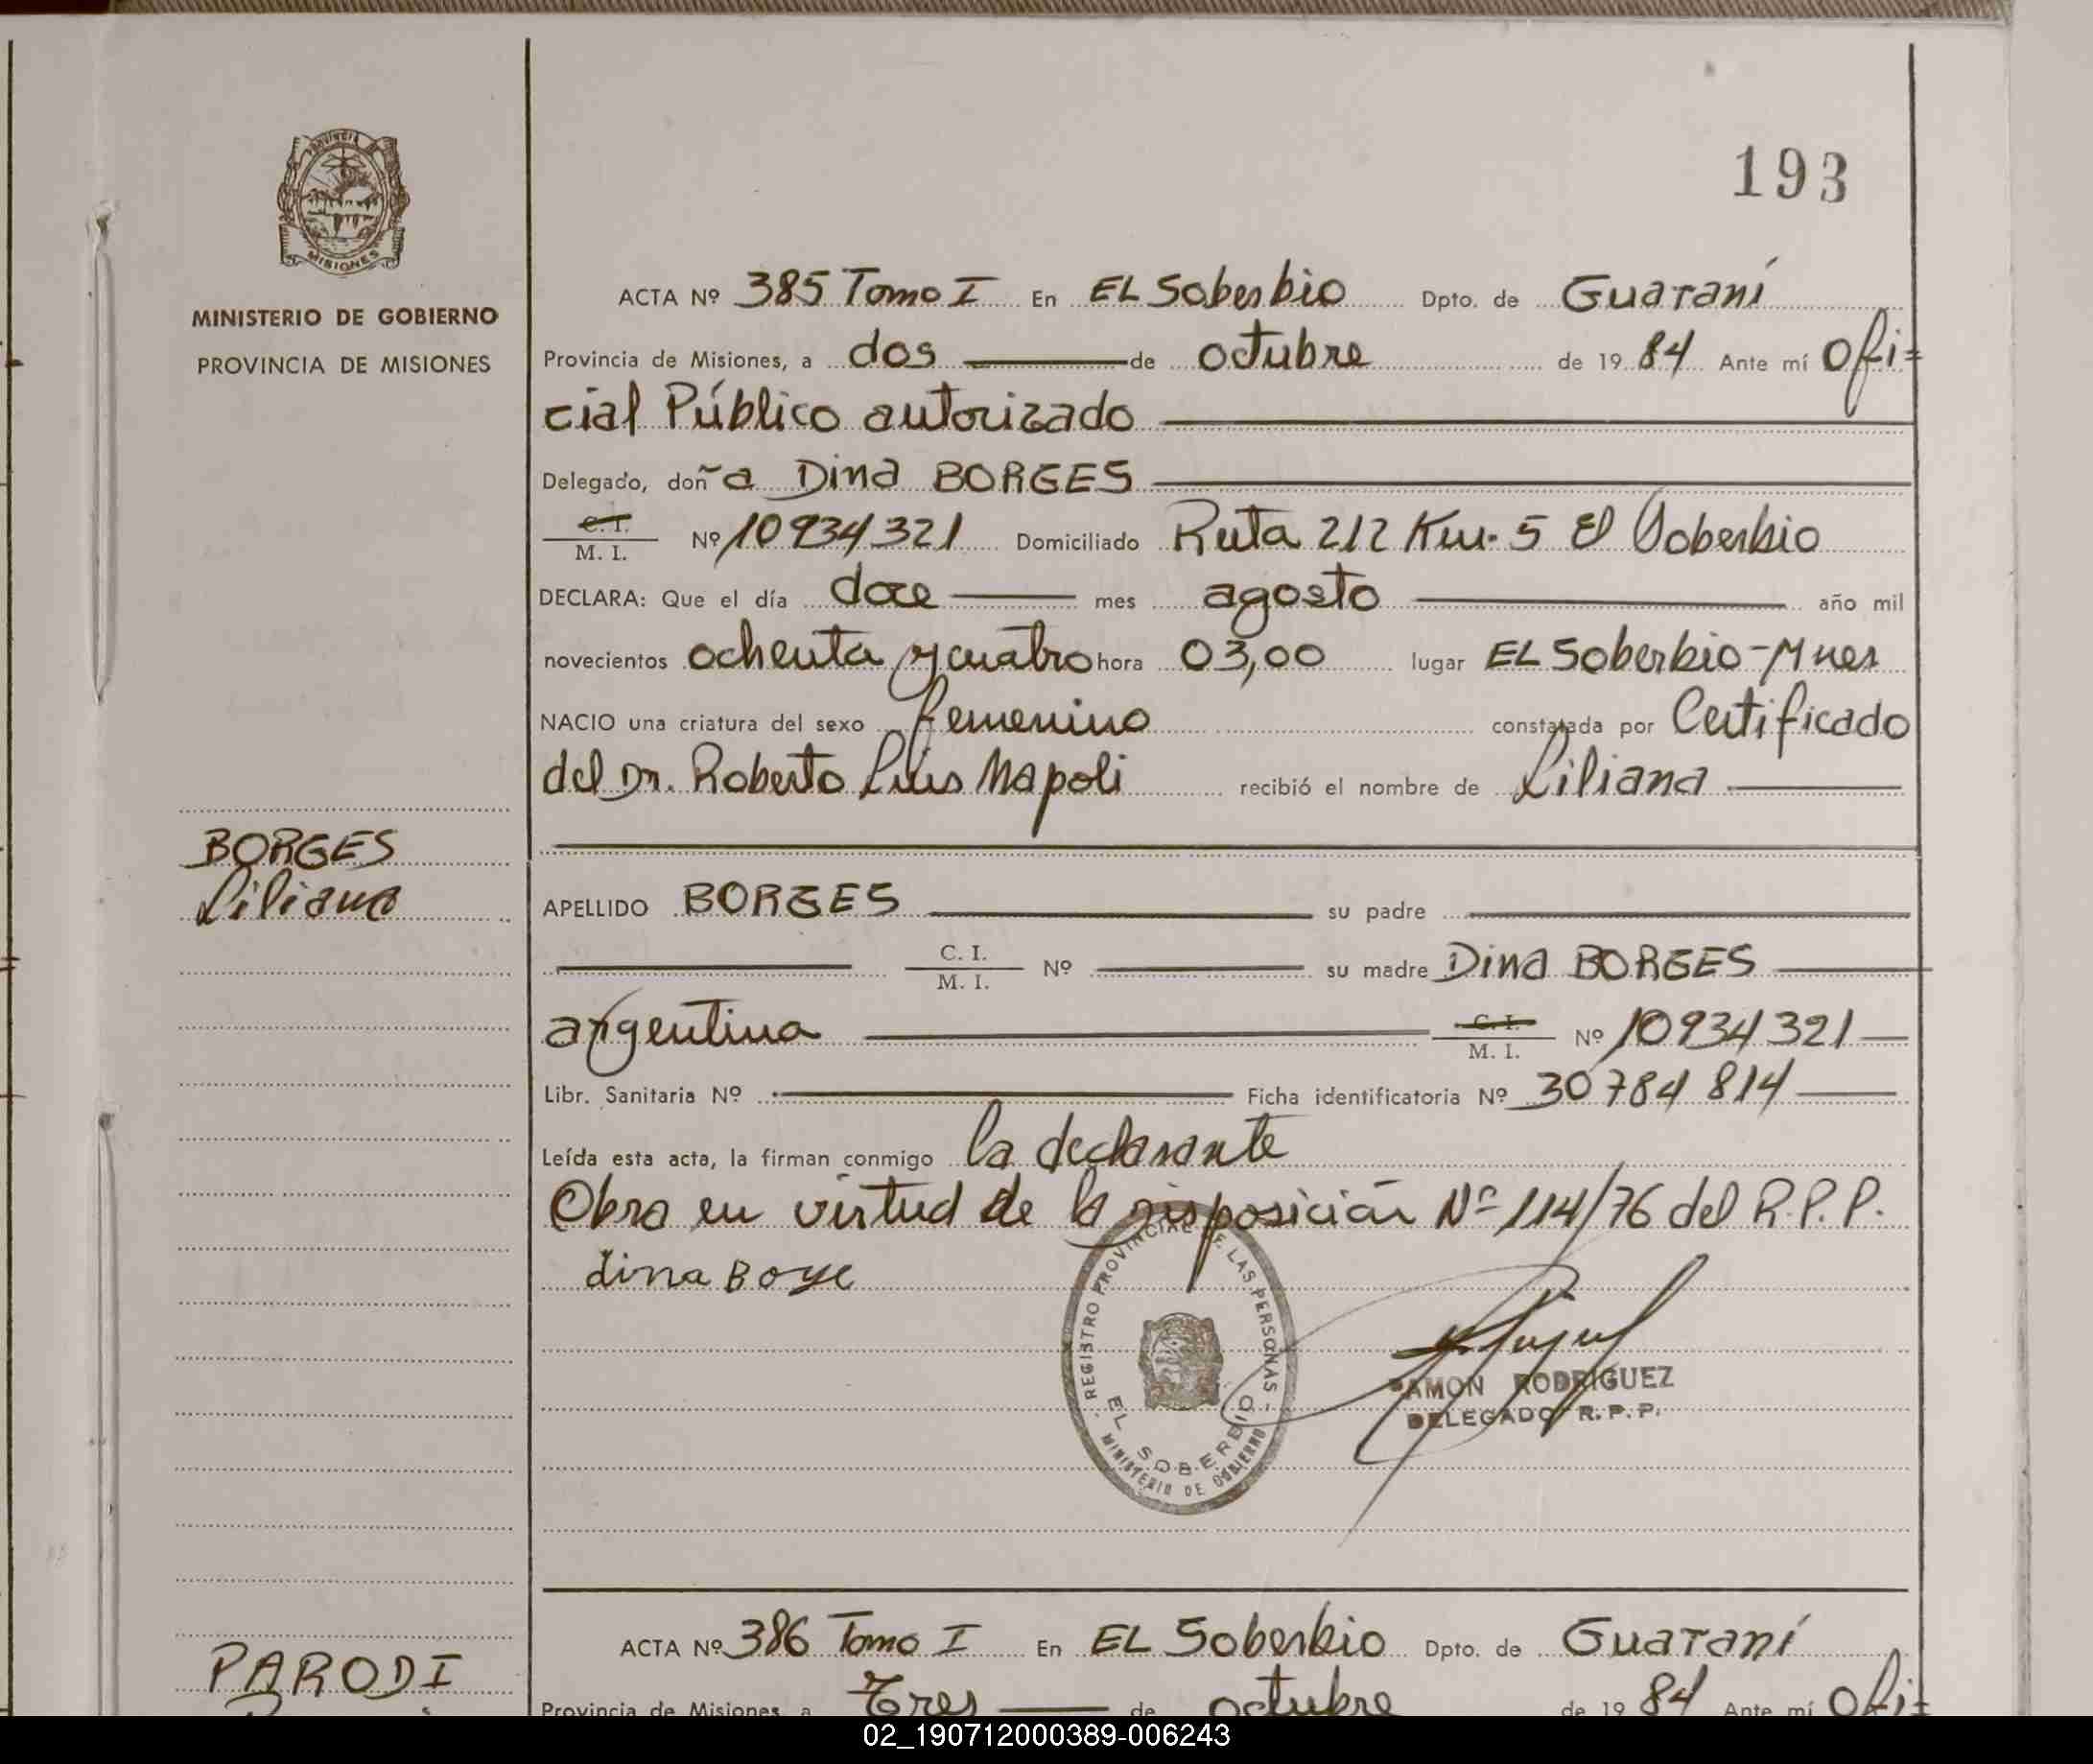 PROVINCIA
MISIONES
MINISTERIO DE GOBIERNO
PROVINCIA DE MISIONES
193
ACTA Nº 385 Tomo I En EL Soberbio Dpto. de Guaraní
Provincia de Misiones, a dos de octubre de 19 84 Ante mí Ofi=
cial Público autorizado
Delegado, doña Dina BORGES
C. I. M. I. Nº 10934321 Domiciliado Ruta 212 Km. 5 El Soberbio
DECLARA: Que el día doce mes agosto año mil
novecientos ochenta y cuatro hora 03,00 lugar EL Soberbio-Mnes
NACIO una criatura del sexo femenino constatada por Certificado
del Dr. Roberto Luis Napoli recibió el nombre de Liliana
BORGES
Liliana
APELLIDO BORGES su padre
C. I. M. I. Nº su madre Dina BORGES
argentina C. I. M. I. Nº 10934321
Libr. Sanitaria Nº Ficha identificatoria Nº 30784814
Leída esta acta, la firman conmigo la declarante
Obra en virtud de la disposición Nº 114/76 del R.P.P.
dina Boye
REGISTRO PROVINCIAL DE LAS PERSONAS
EL SOBERBIO
MINISTERIO DE GOBIERNO
RAMON RODRIGUEZ
DELEGADO R. P. P.
PARODI
ACTA Nº 386 Tomo I En EL Soberbio Dpto. de Guaraní
Provincia de Misiones, a Tres de octubre de 19 84 Ante mí Ofi=
02_190712000389-006243